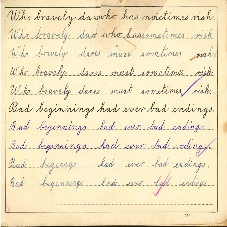 Who bravely dares must sometimes risk
Who bravely dares who has sometimes risk
Who bravely dares must sometimes risk.
Who bravely dares must sometimes risk.
Who bravely dares must sometimes risk.
Bad beginnings had ever bad endings.
Bad beginnings had ever bad endings
Bad beginnings had ever bad endings
Bad beginings had ever bad endings.
Bad beginnings had ever bad endings